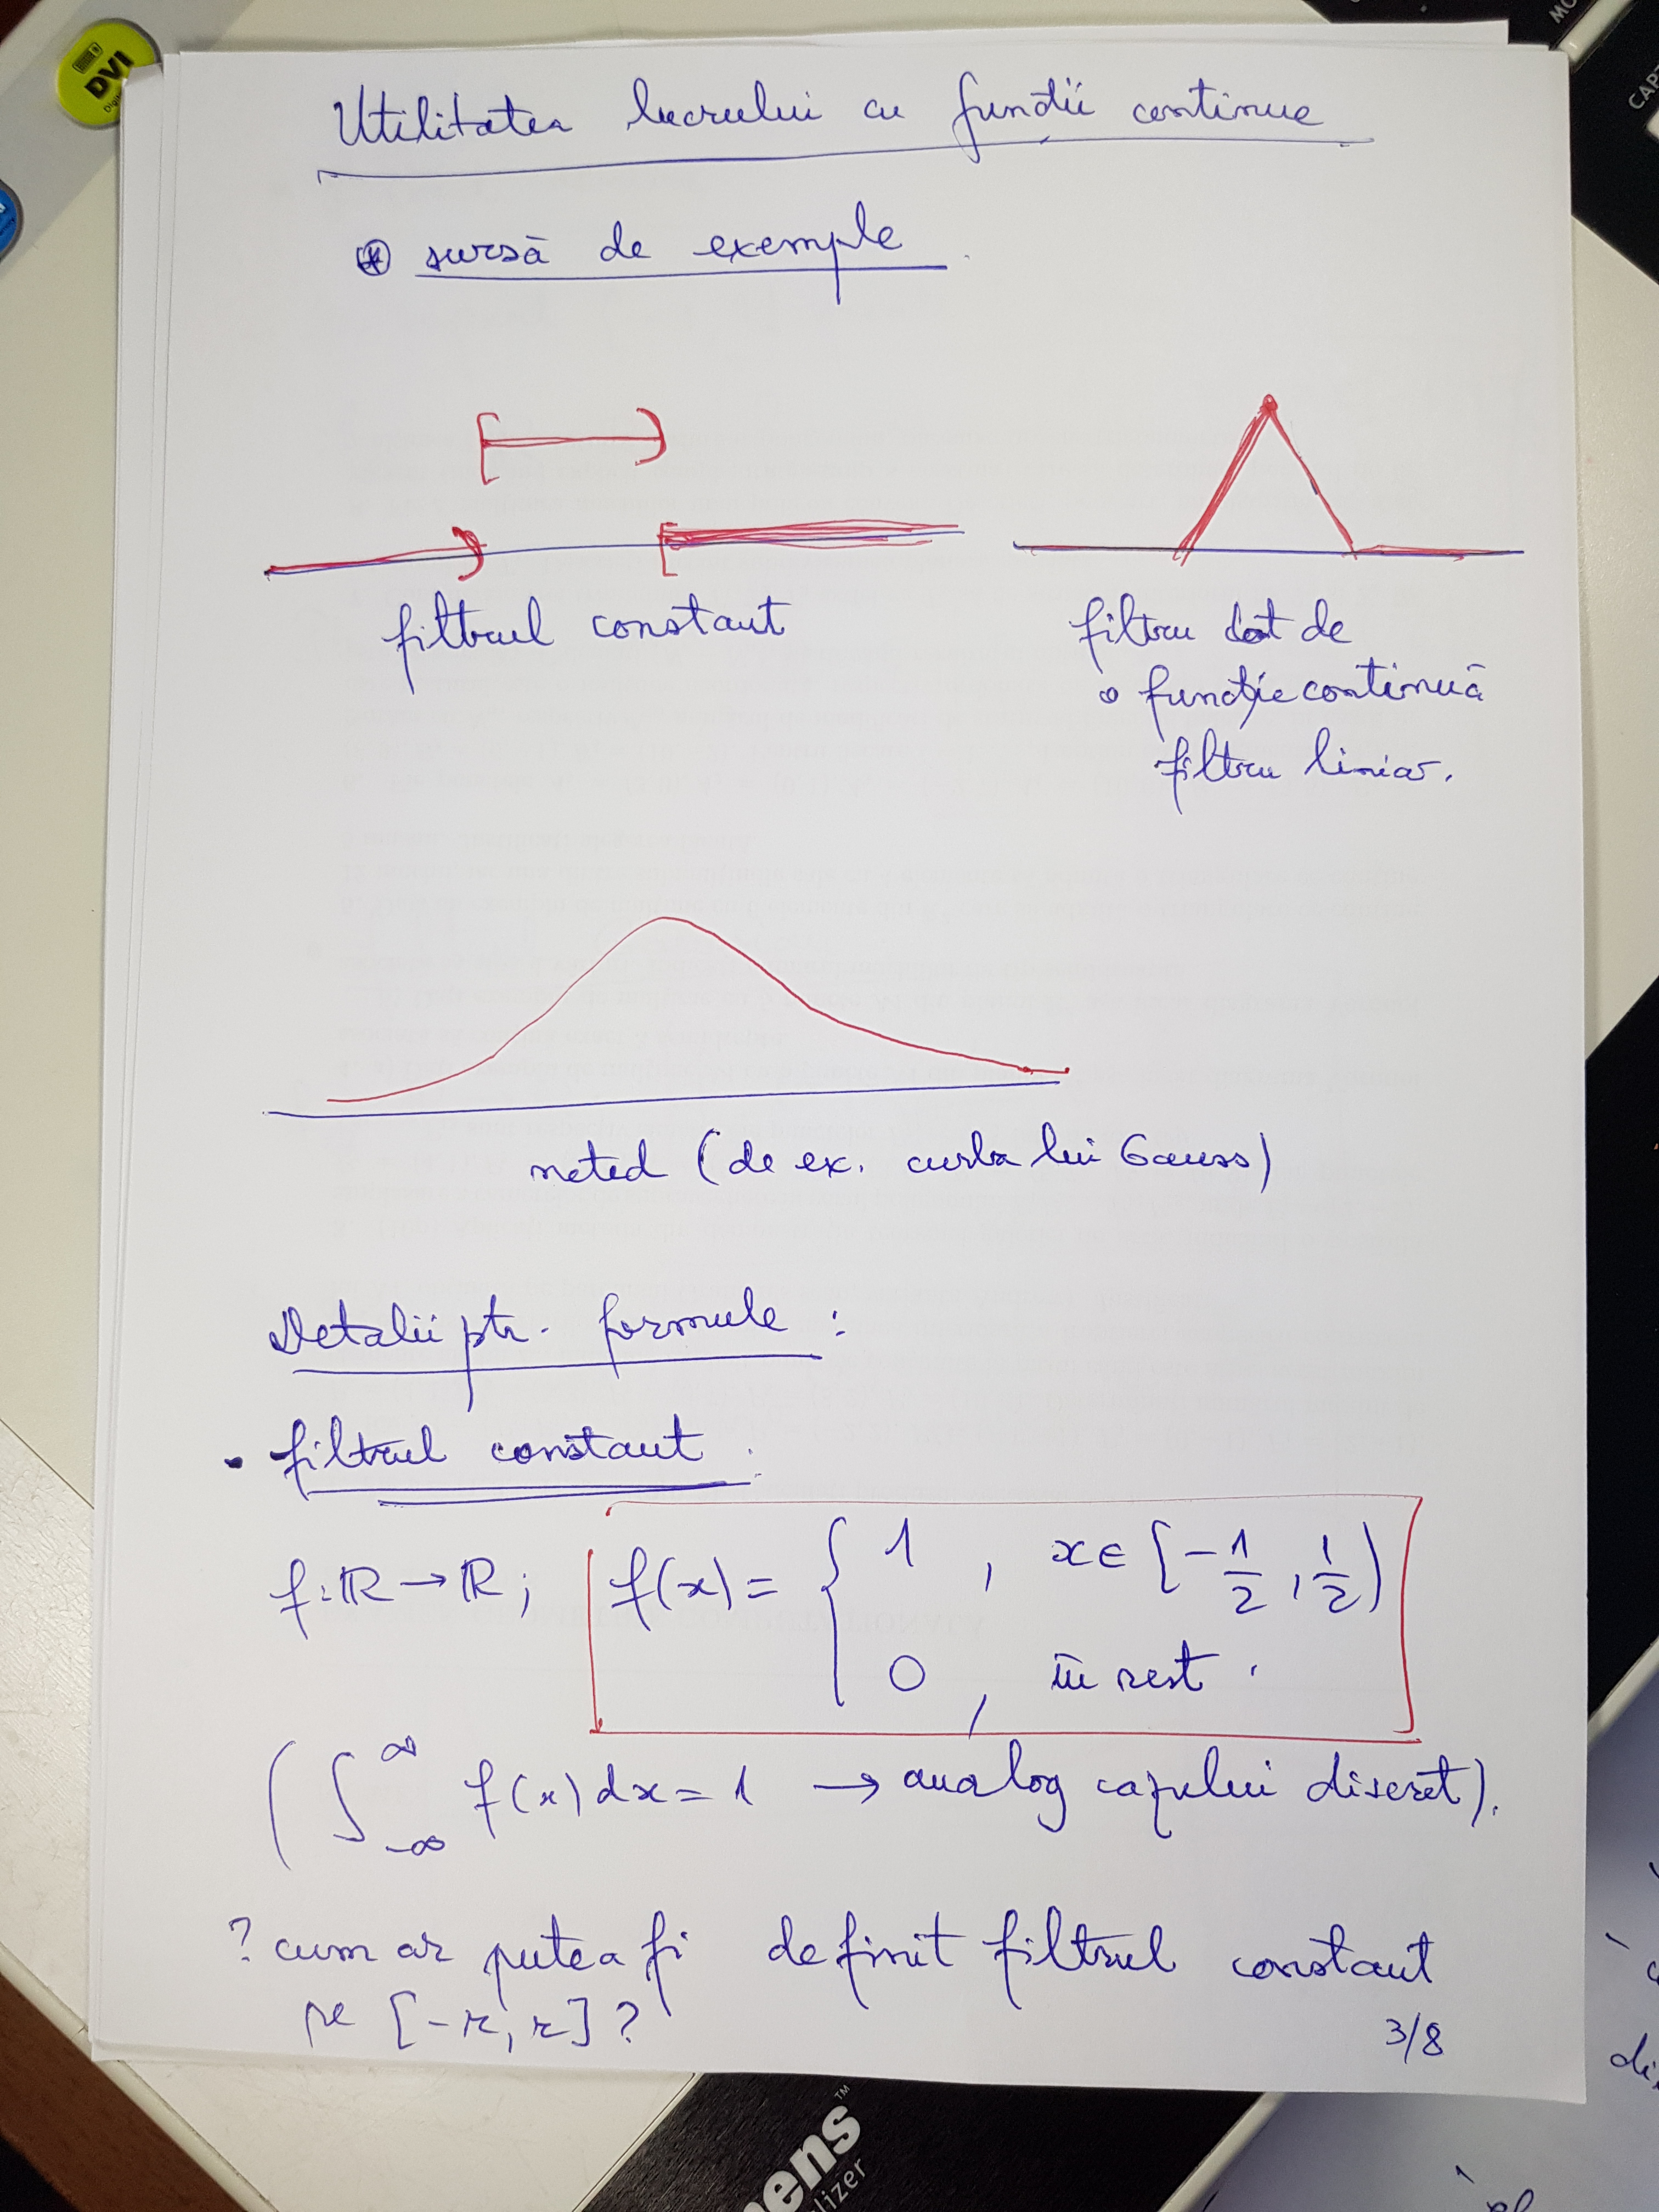 DVI
Utilitatea lucrului cu funcții continue
⊛ sursă de exemple
filtrul constant
filtru dat de
o funcție continuă
filtru liniar.
neted (de ex. curba lui Gauss)
Detalii ptr. formule :
• filtrul constant.
f: ℝ → ℝ ; f(x) = { 1 , x ∈ [-1/2, 1/2)
0 , în rest.
( ∫_{-∞}^{∞} f(x) dx = 1 → analog cazului discret).
? cum ar putea fi definit filtrul constant
pe [-r, r] ?
3/8